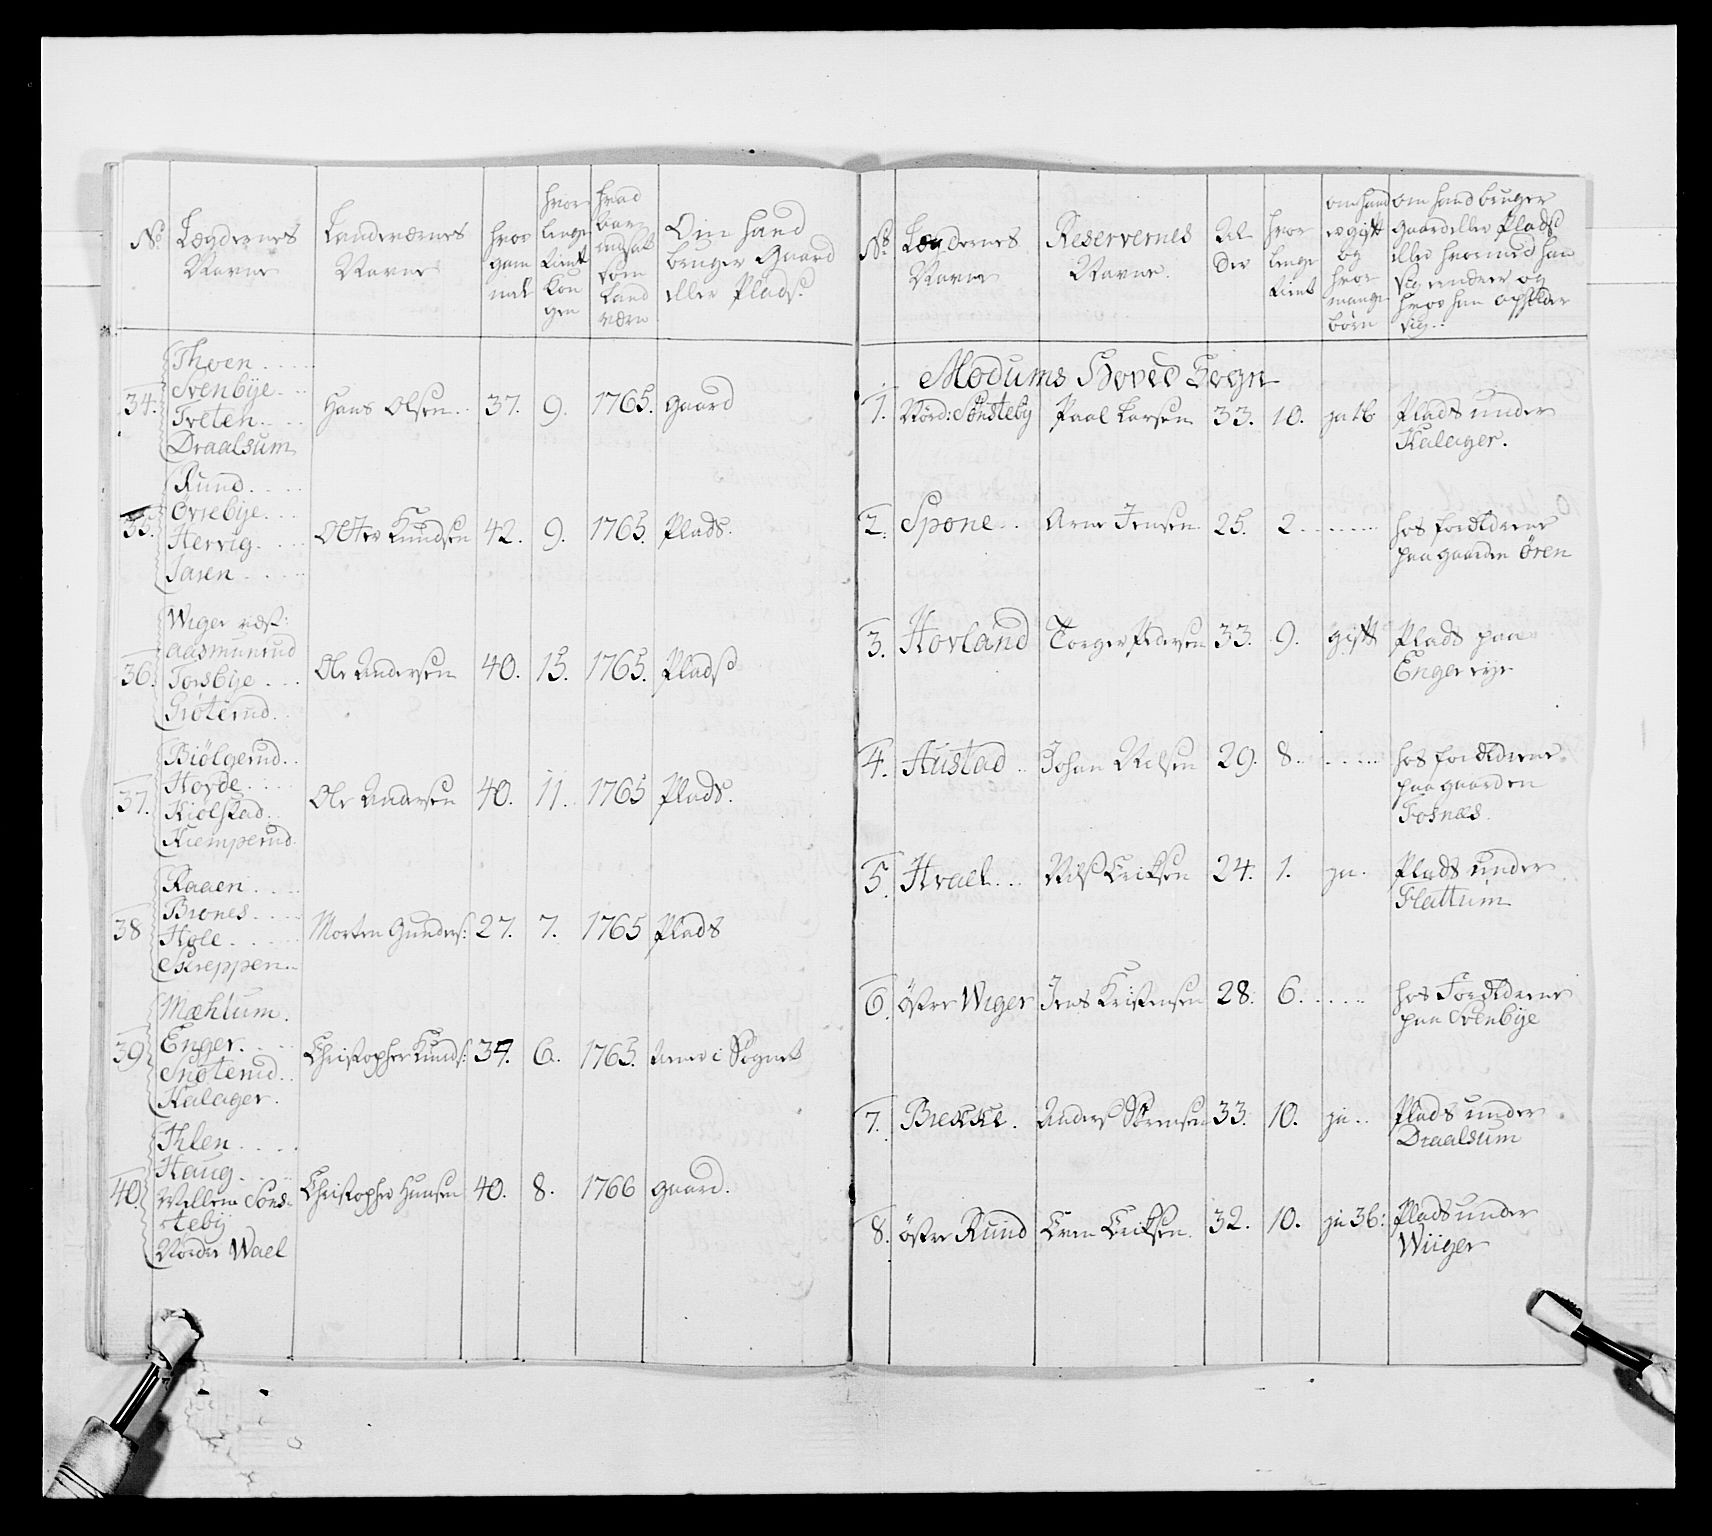 No
Lægdernes
Navne
Landeværnes
Navne
hvor
gam
mel
hvor
lenge
tient
Kon
gen
hvad
aar
ansatt
som
Land
værn
Om hand
bruger Gaard
eller Plads
34.
Thoen
Svenbÿe
Tveten
Draalsum
Hans Olsen
37.
9.
1765.
gaard
35.
Rund
Øvrebÿe
Hervig
Jaren
Otter Knudsen
42.
9.
1765.
Plads.
36.
Wiger vest:
Aasmunrud
Torsbÿe
Grøterud
Ole Andersen
40.
15.
1765.
Plads
37.
Biølgerud
Hovde
Kiølstad
Kiemperud
Ole Andersen
40.
11.
1765
Plads.
38
Raaen
Brones
Hole
Skreppen
Morten Gunders:
27.
7.
1765
Plads
39
Mæhlum
Enger
Snøterud
Kalager
Christopher Knuds:
34.
6.
1765.
i Sognet
40.
Ihlen
Haug
Mellem Søns-
tebÿ
Nordre Wael
Christopher Hansen
40.
8.
1766
gaard.
No
Lægdernes
Navne
Reservernes
Navne.
Al
der
hvor
lenge
tient
om hand
er gift
og
hvor
mange
børn
om hand bruger
gaard eller Plads
eller hvormed han
sig ernærer og
hvor han opholder
sig.
Modums Hoved Sogn
1.
Nord: Sønstebÿ
Paal Larsen
33.
10.
ja 1 b
Plads under
Kalager.
2.
Spone
Arne Jensen
25.
2
hos forældrene
paa gaarden Øren
3.
Hovland
Torger Pedersen
33.
9.
gift
Plads paa
Enger eÿe
4.
Austad
Johan Nilsen
29.
8
hos forældrene
paa gaarden
Fosnæs
5.
Hvael
Nils Eriksen
24.
1.
ja.
Plads under
Flattum
6.
Østre Wiger
Jens Kristensen
28.
6.
hos Forældrene
paa Svenbÿe
7.
Brekke.
Anders Sørensen
33.
10.
ja
Plads under
Draalsum
8.
Østre Rund
Even Eriksen.
32.
10.
ja 3 b:
Plads under
Wiiger